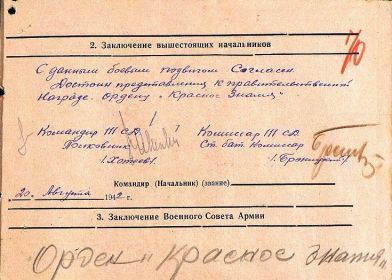 70
2. Заключение вышестоящих начальников
С данным боевым подвигом Согласен.
Достоин представления к правительственной
Награде. Ордену „Красное Знамя"
Командир III СД Комиссар III СД
Полковник Ст. бат. Комиссар
Командир (Начальник) (звание)
„20" Августа 1942 г.
3. Заключение Военного Совета Армии
Орден „Красное Знамя"